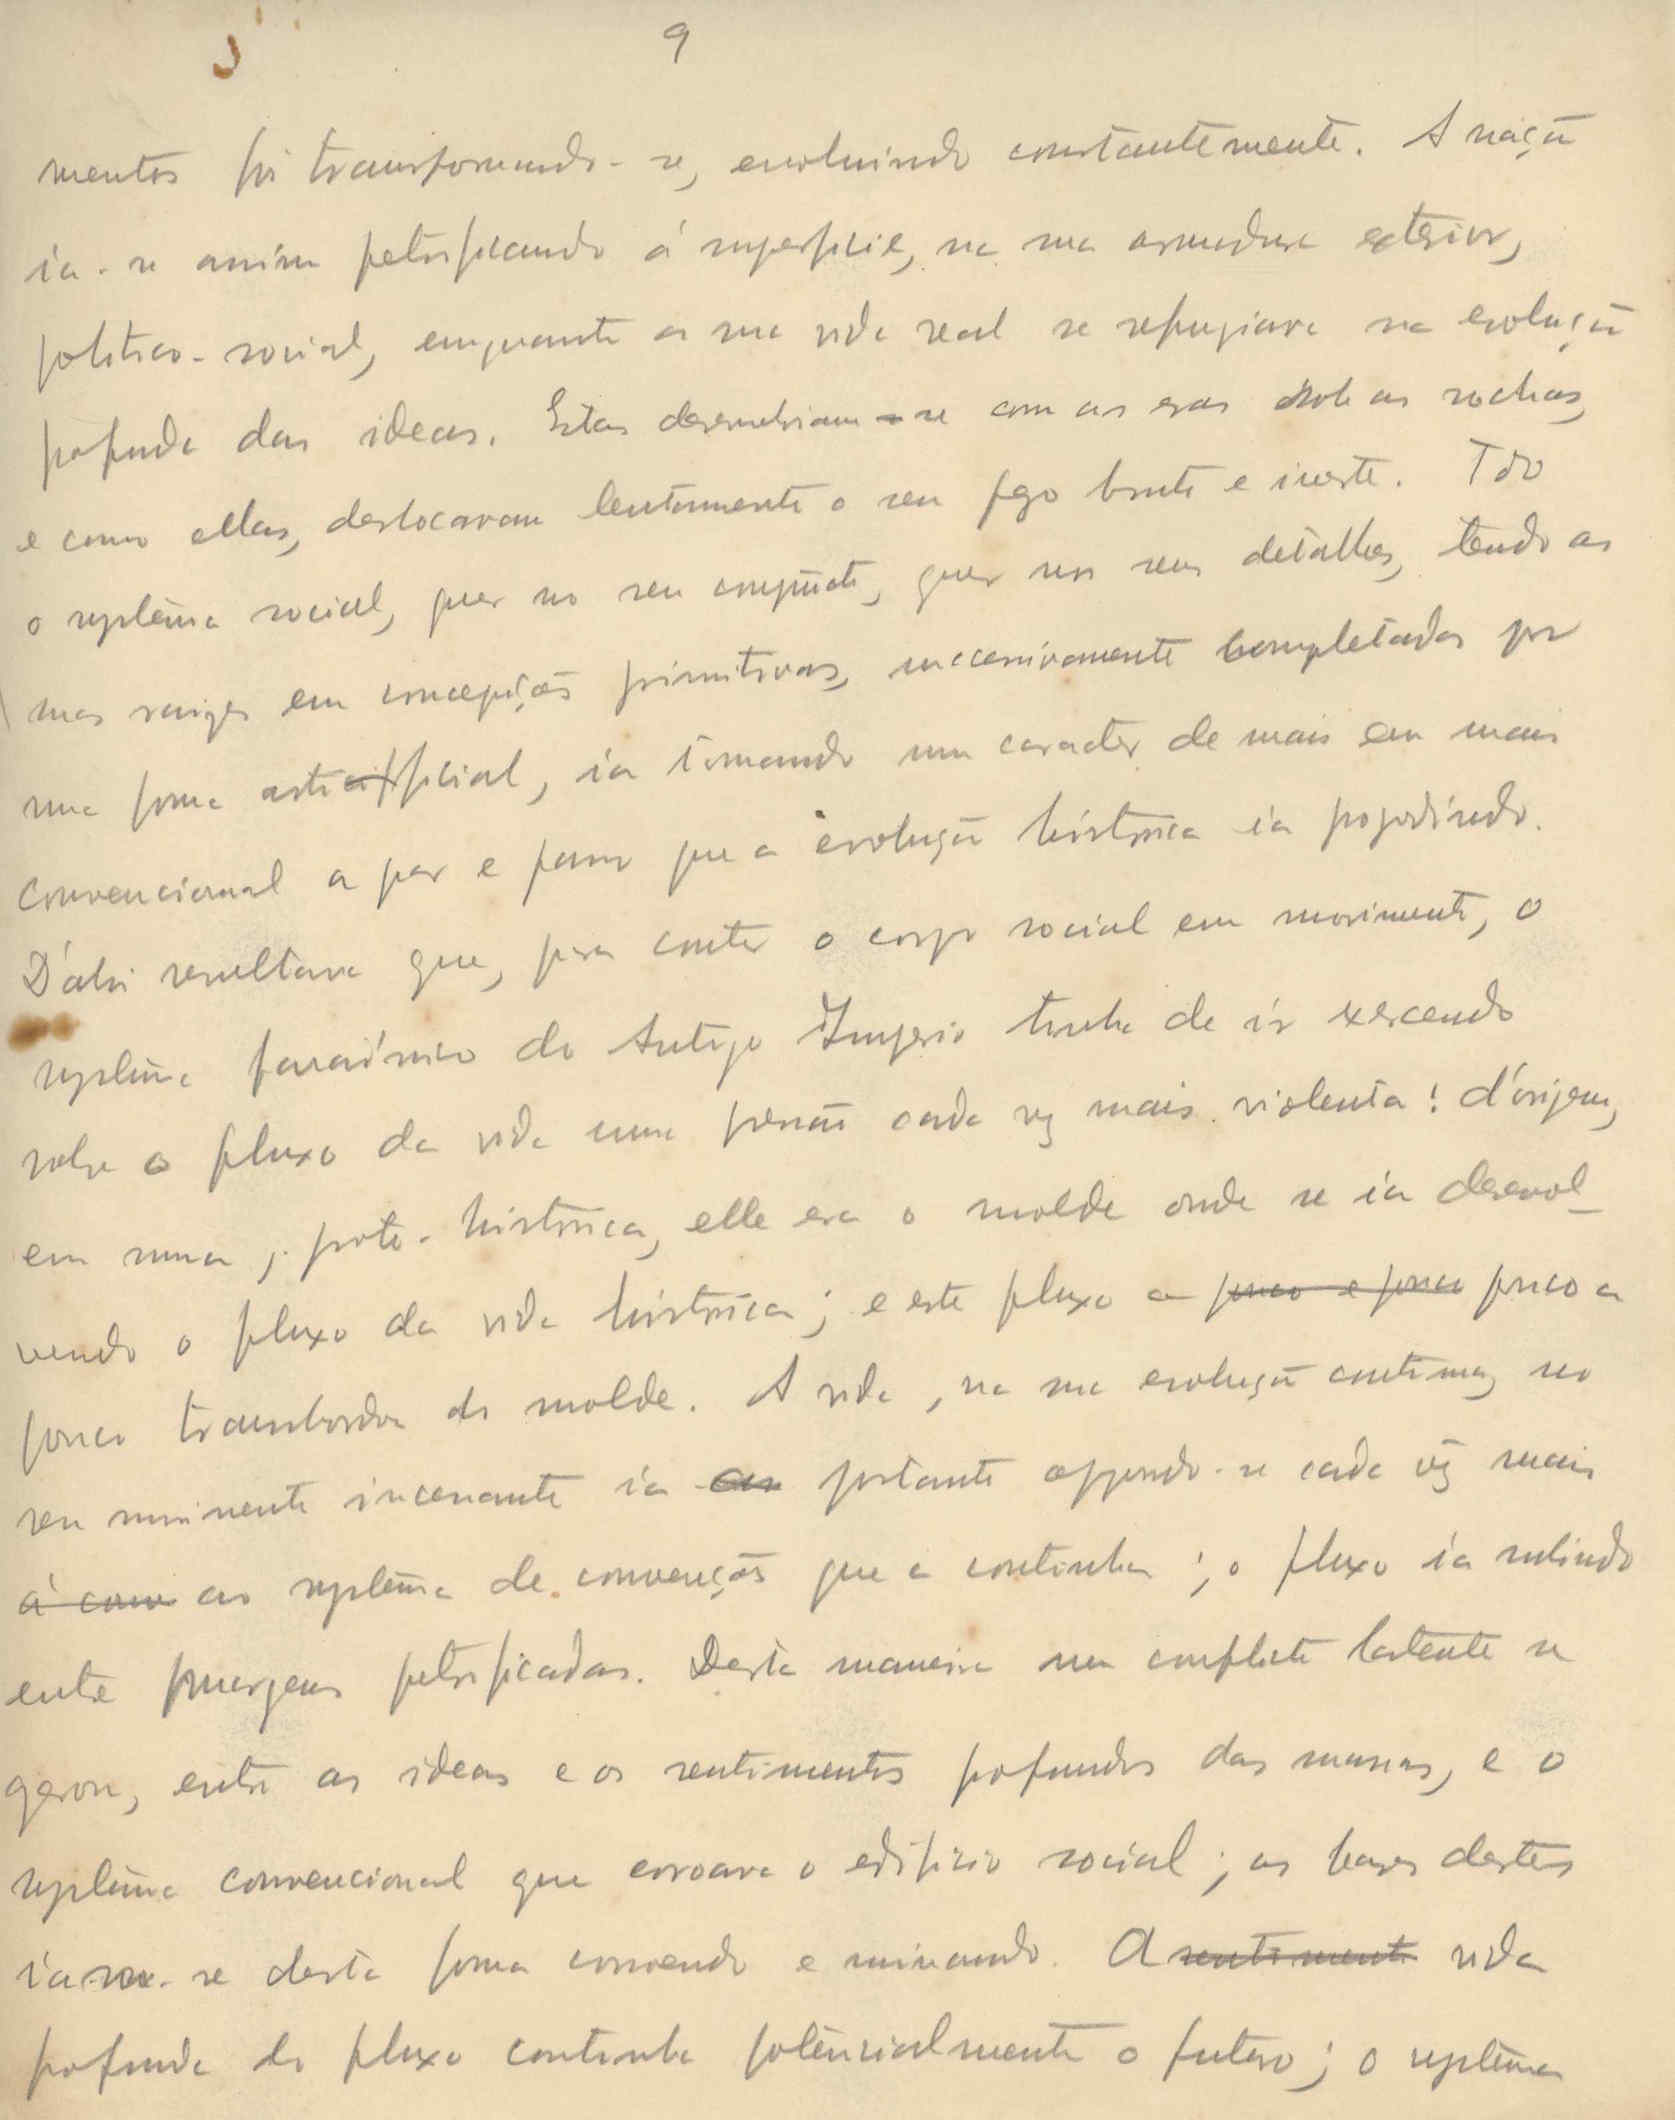 9
mentos foi transformando-se, evoluindo constantemente. A nação
ia-se assim petrificando á superficie, na sua armadura exterior,
politico-social, emquanto a sua vida real se refugiava na evolução
profunda das ideas. Estas desenvolviam-se com as eras sob as rochas,
e como ellas, deslocavam lentamente o seu fogo bruto e inerte. Todo
o systêma social, quer no seu conjuncto, quer nos seus detalhes, tendo as
suas raizes em concepções primitivas, successivamente completadas por
uma forma artificial, ia tomando um caracter de mais em mais
convencional a par e passo que a evolução histórica ia progredindo.
D'ahi resultava que, para conter o corpo social em movimento, o
systêma faraónico do Antigo Imperio tinha de ir exercendo
sobre o fluxo da vida uma pressão cada vez mais violenta: d'origem,
em suma, proto-histórica, elle era o molde onde se ia desenvol-
vendo o fluxo da vida histórica; e este fluxo a pouco e pouco pouco a
pouco transbordou do molde. A vida, na sua evolução continua, no
seu movimento incessante ia ao portanto oppondo-se cada vez mais
á com ao systêma de convenções que a continha; o fluxo ia subindo
entre margens petrificadas. Desta maneira um conflicto latente se
gerou, entre as ideas e os sentimentos profundos das massas, e o
systêma convencional que coroava o edificio social; as bases destes
iam-se desta forma corroendo e minando. A sentimento vida
profunda do fluxo continha potêncialmente o futuro; o systêma